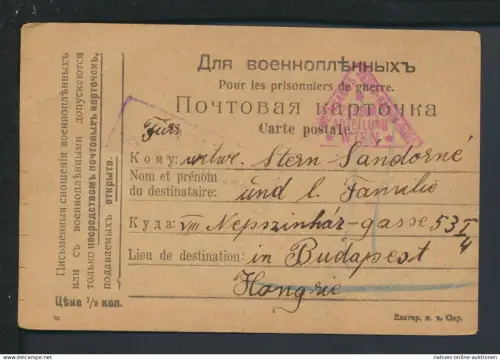 Для военноплѣнныхъ
Pour les prisonniers de guerre.
Почтовая карточка
Carte postale
Für
Кому: witwe. Stern Sandorné
Nom et prénom
du destinataire: und l. Familie
Куда: VIII Nepszinház-gasse 53 I/4
Lieu de destination: in Budapest
Hongrie
Письменныя сношенія военноплѣнныхъ
или съ военноплѣнными допускаются
только посредствомъ почтовыхъ карточекъ,
подаваемыхъ открыто.
Цѣна 1/2 коп.
WIEN